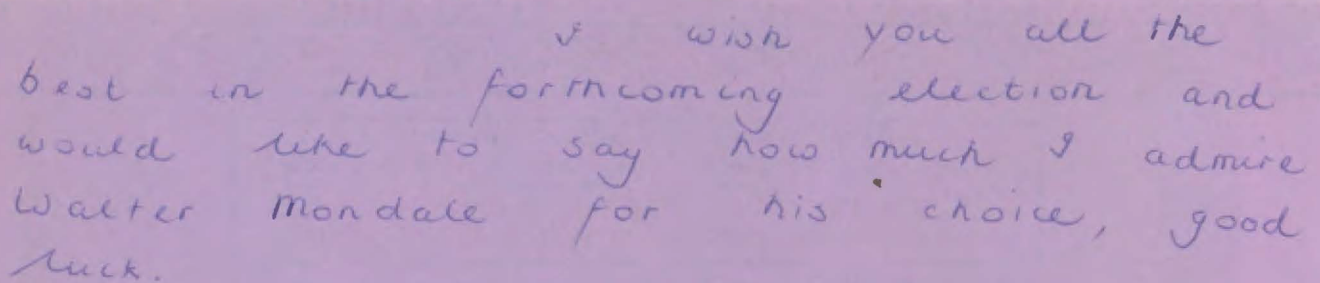 I wish you all the
best in the forthcoming election and
would like to say how much I admire
Walter Mondale for his choice, good
luck.